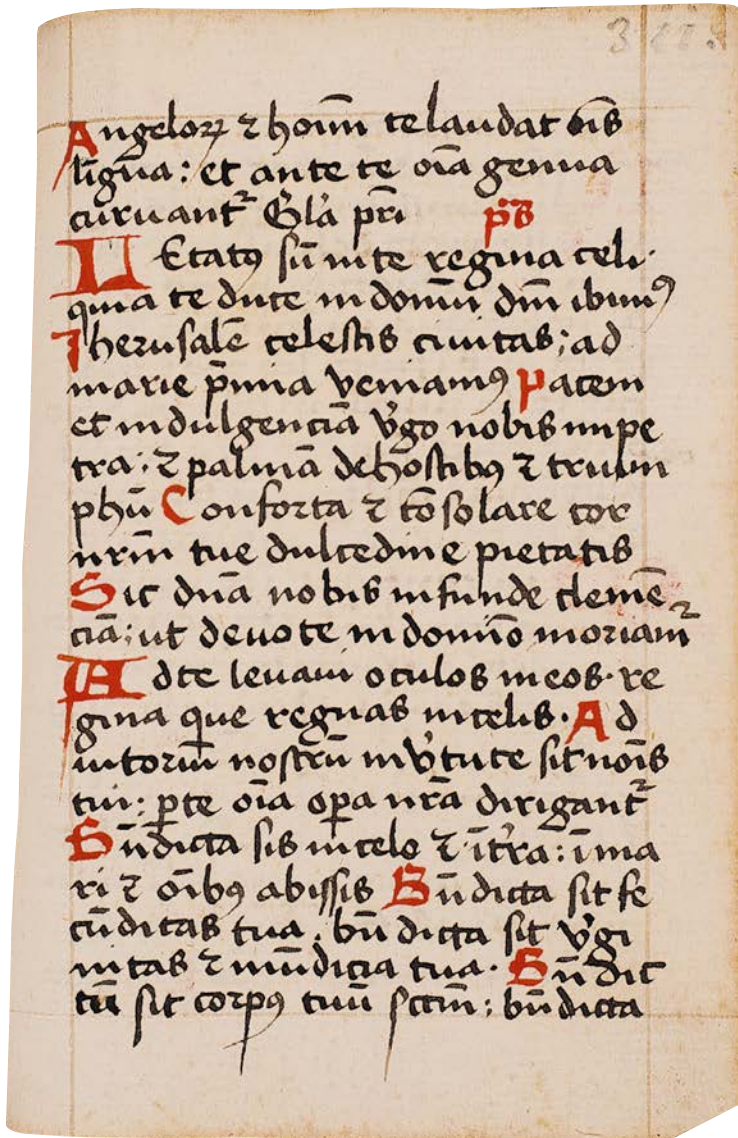 Angeloꝝ ⁊ hoīm te laudat oīs
līgua : et ante te oīa genua
curuantᷣ Glīa pr̄i p̄s
LEtatꝯ sū in te regina celi ·
quia te duce in domū dn̄i ibimꝯ
Iherusalē celestis ciuitas ; ad
marie p̄mia veniamꝯ Pacem
et indulgenciā v̓go nobis impe
tra : ⁊ palmā de hostibꝯ ⁊ trium
phū Conforta ⁊ cōsolare cor
nr̄m tue dulcedine pietatis
Sic dn̄a nobis infunde clemē
ciā ; ut deuote in domīo moriamᷣ
AD te leuaui oculos meos · re
gina que regnas in celis · Ad
iutoriū nostrū in v̓tute sit noīs
tui : ꝑ te oīa oꝑa nr̄a dirigantᷣ
Bn̄dicta sis in celo ⁊ ī tr̄ra : ī ma
ri ⁊ oībꝯ abissis Bn̄dicta sit fe
cūditas tua . bn̄dicta sit v̓gi
nitas ⁊ mūdicia tua · Bn̄dic
tū sit corpꝯ tuū sctm̄ : bn̄dicta